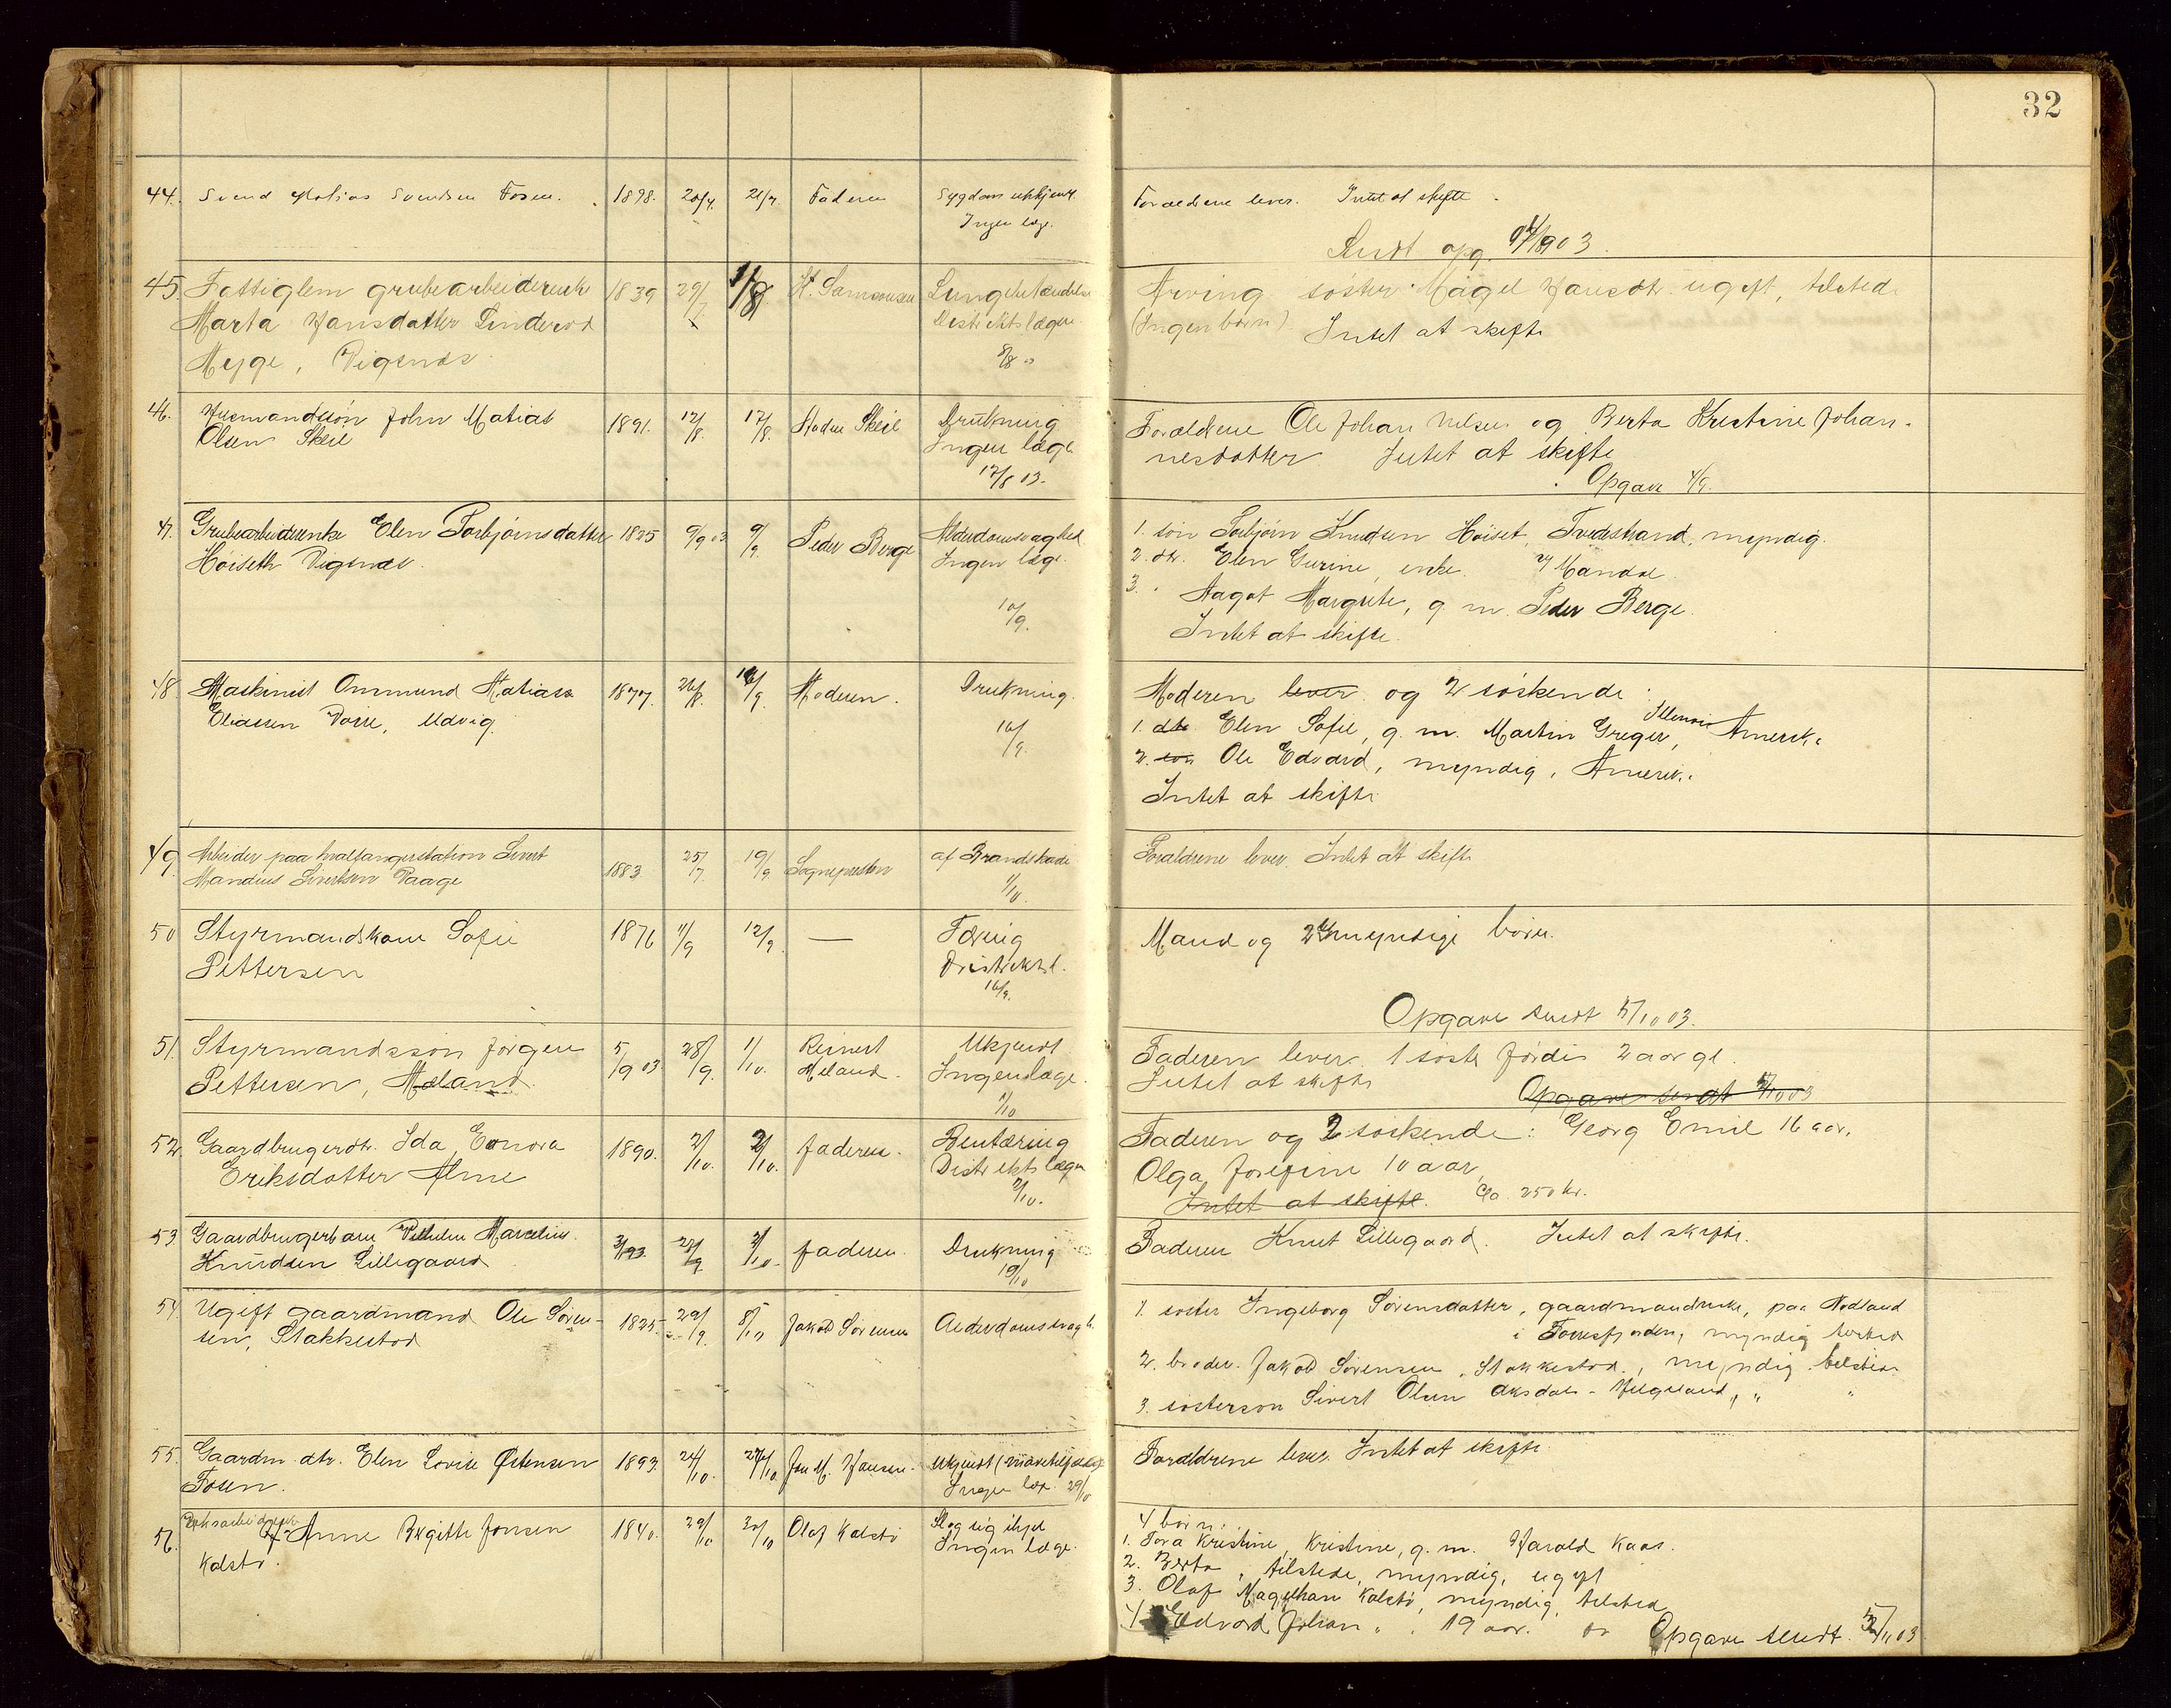 32
44. Svend Matias Svendsen Fosen. 1898. 20/7. 21/7 Faderen Sygdom ukjendt.
Ingen læge.
Forældrene lever. Intet at skifte.
Sendt opg. 1903.
45. Fattiglem grubearbeiderenke 1839 29/7 1/8 St. Samsonsen Lungebetændelse
Marta Hansdatter Linderod Distriktslægen
Myge, Vigsnæs. 8/8 03
Arving søster Magel Hansdtr. ugift, tilstede
(Ingen børn). Intet at skifte
46. Husmandssøn John Matias 1891. 12/8. 17/8. Moderen Skeie Drukning
Olsen Skeie Ingen læge
17/8 03.
Forældrene Ole Johan Nilsen og Berta Kristine Johan-
nesdatter Intet at skifte
Opgave 4/9.
47. Grubearbeiderenke Elen Torbjørnsdatter 1825 9/9 03 9/9. Peder Berge Alderdomssvaghed
Høiseth Vigsnæs. Ingen læge.
10/9.
1. søn Torbjørn Knudsen Høiset, Tvedestrand, myndig.
2. dtr. Elen Gurine, enke. Mandal.
3. " Aagot Margrete, g. m. Peder Berge.
Intet at skifte.
48. Maskinist Ommund Matias 1877. 26/8. 14/9. Moderen. Drukning.
Eliassen Døsse, Udvig. 16/9.
Moderen lever og 2 søskende:
1. dtr Elen Sofie, g. m. Martin Greger, Illenois Amerika
2. søn Ole Edvard, myndig, Amerik.
Intet at skifte
49. Arbeider paa hvalfangerstation Sivert 1883 25/7. 19/9. Sognepresten af Brandskade
Mandius Sivertsen Vaage 1/10.
Forældrene lever. Intet at skifte
50 Styrmandskone Sofie 1876 11/9 12/9. — Tæring
Pettersen Distriktsl.
16/9.
Mand og 2 umyndige børn.
Opgave sendt 5/10 03.
51. Styrmandssøn Jørgen 5/9 03 28/9. 1/10. Reinert Ukjendt
Pettersen, Meland. Meland. Ingen læge.
1/10
Faderen lever. 1 søster Jørdis 2 aar gl.
Intet at skifte
Opgave sendt 5/10 03
52. Gaardbrugerdtr. Ida Eonora 1890. 2/10. 2/10. faderen. Bentæring
Eriksdatter Alme Distriktslægen
2/10.
Faderen og 2 søskende: Georg Emil 16 aar,
Olga Josefine 10 aar,
Intet at skifte. Ca. 250 kr.
53. Gaardbrugerbarn Vilhelm Marcelius 3/93. 28/9 3/10. faderen. Drukning
Knudsen Lillegaard 19/10
Faderen Knut Lillegaard. Intet at skifte.
54. Ugift gaardmand Ole Søren- 1825. 29/9. 8/10 Jakob Sørensen Alderdomssvagh.
sen, Stakkestad
1. søster Ingeborg Sørensdatter, gaardmandsenke, paa Rødland
i Førresfjorden, myndig tilsted
2. broder. Jakob Sørensen, Stakkestad., myndig tilstede.
3. søstersøn Sivert Olsen Aksdal-Helgeland, " "
55. Gaardm. dtr. Elen Lovise Østensen 1893. 24/10. 27/10 Jon M. Hansen. Ukjendt
Fosen. Ingen læge. 29/10
Forældrene lever. Intet at skifte.
56. Anne Birgitte Jonsen 1840. 29/10 30/10 Olaf Kalstø Slog sig ihjel
Kalstø. Ingen læge.
4 børn:
1. Tora Kristine, Kristine, g. m. Harald Kaas.
2. Berta, tilstede, myndig, ugift
3. Olaf Magelhan Kalstø, myndig, tilsted
4 Edvard Johan " . 19 aar. Opgave sendt. 5/11 03